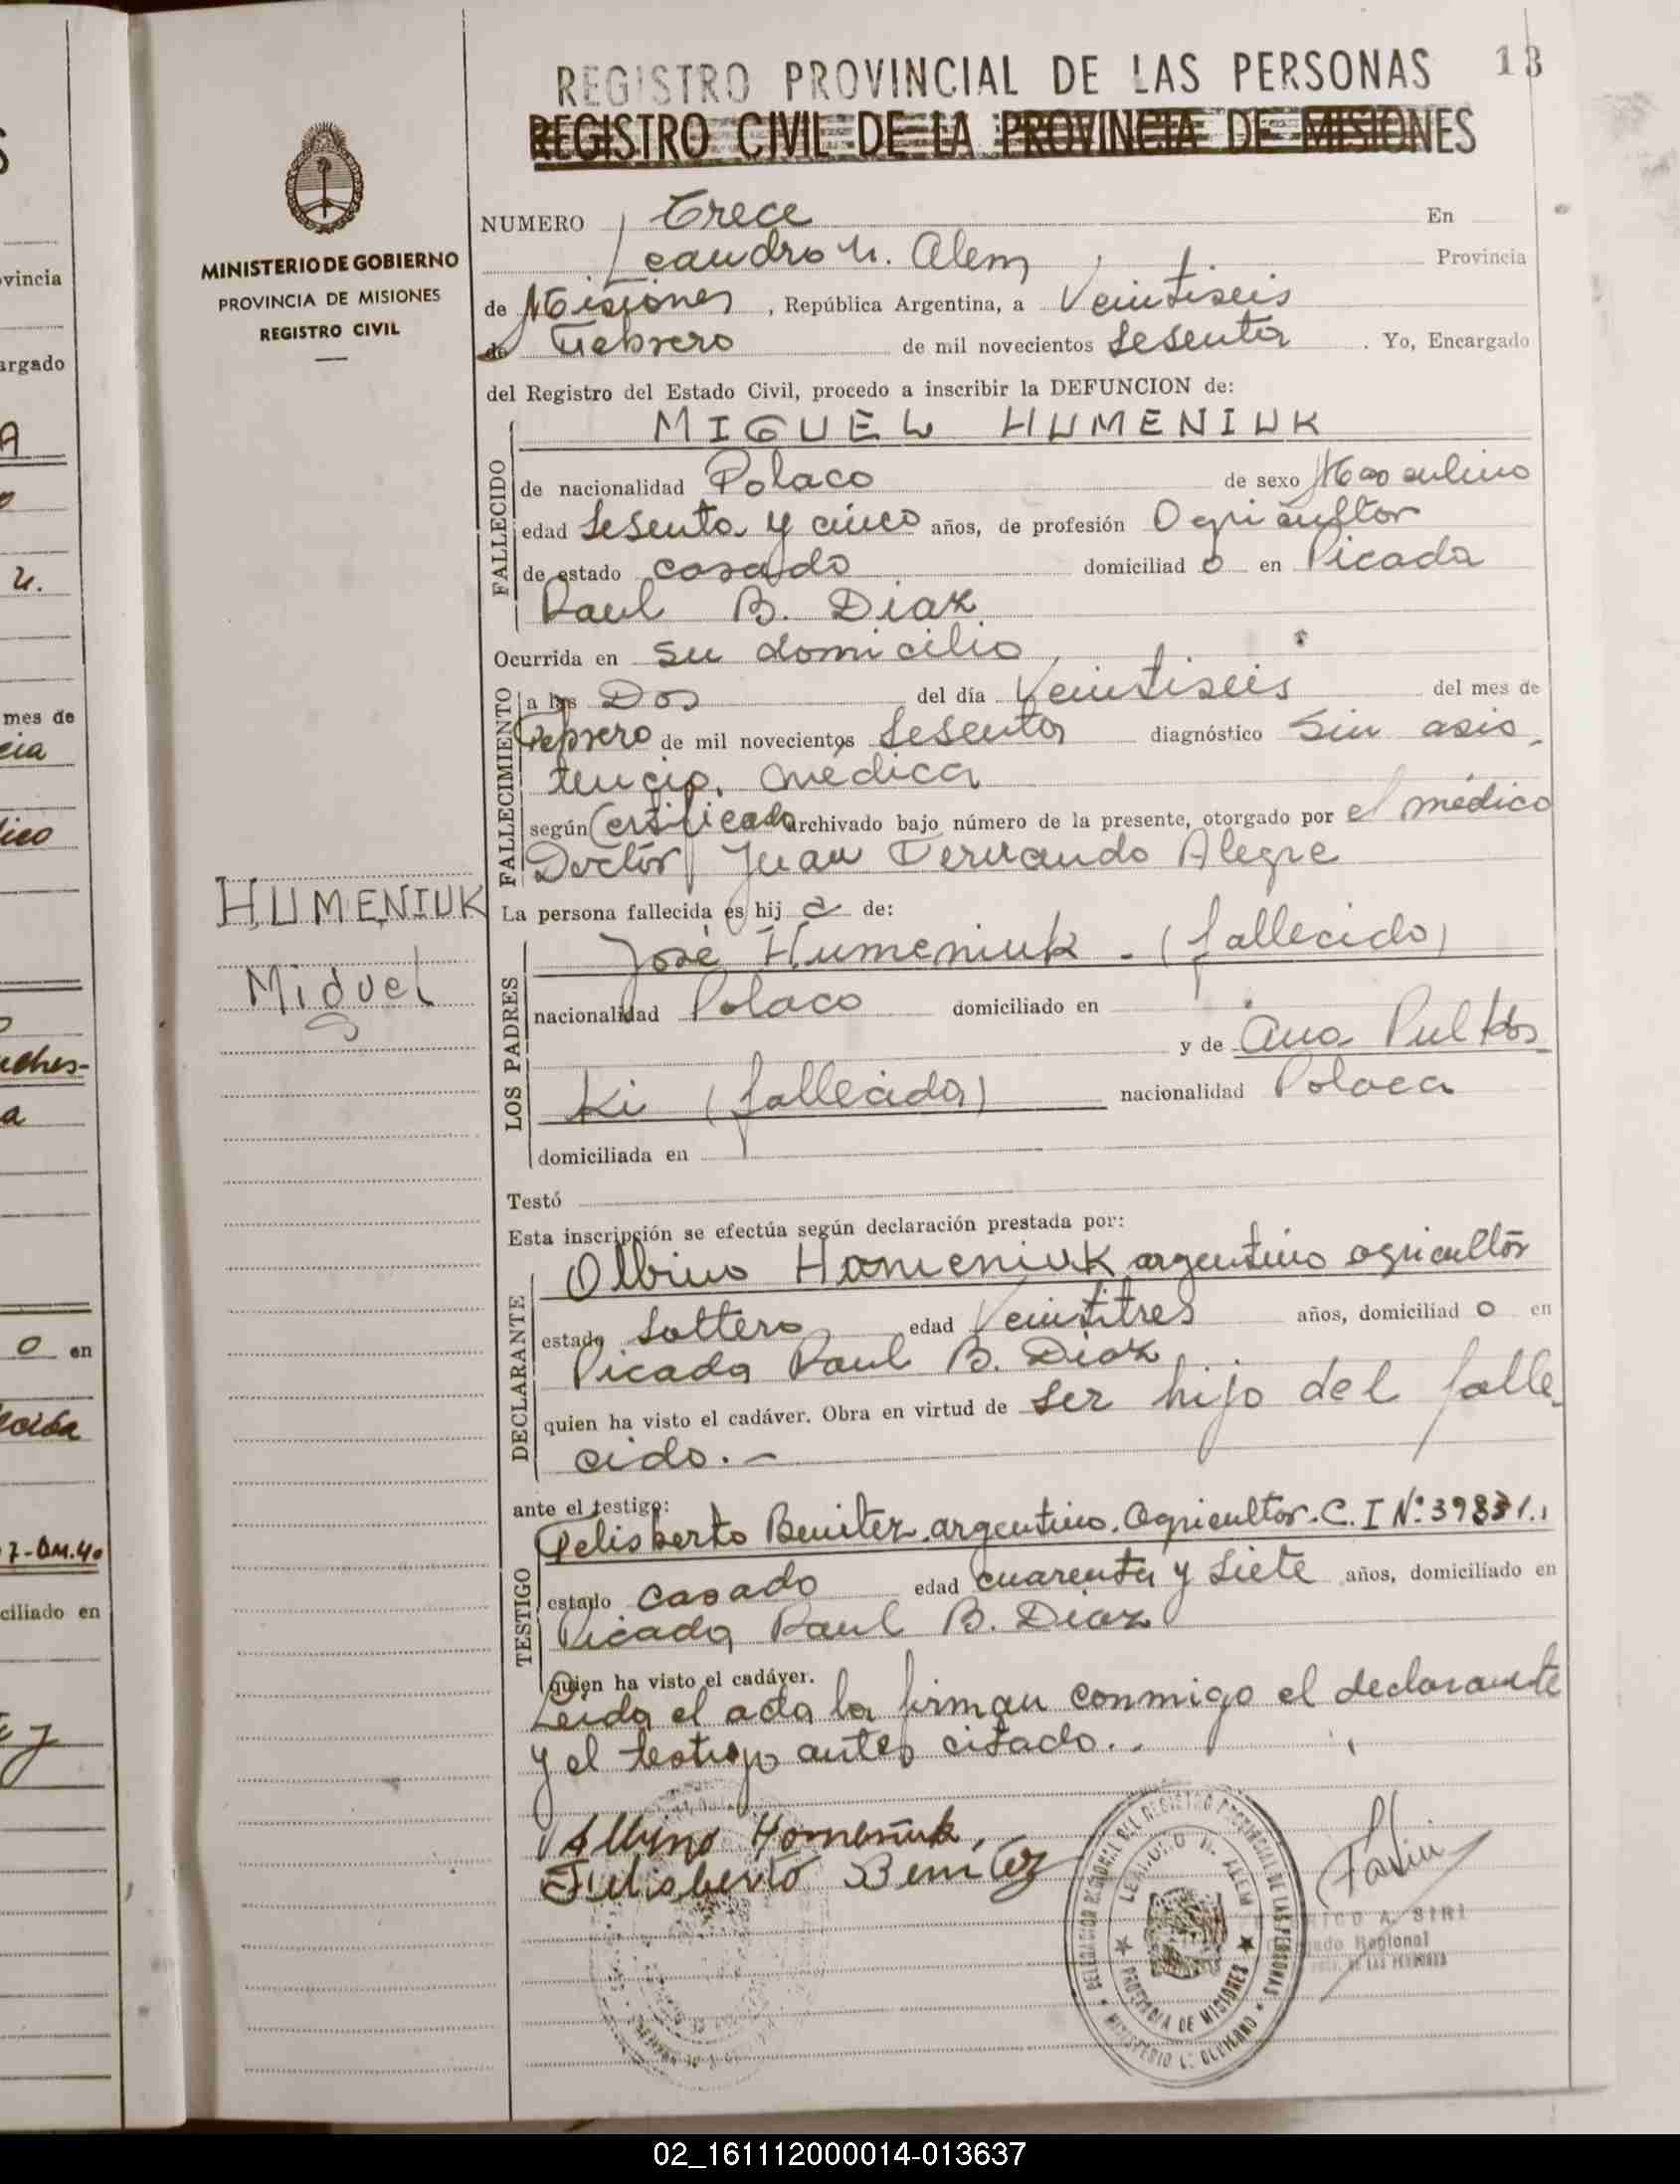 REGISTRO PROVINCIAL DE LAS PERSONAS 13
REGISTRO CIVIL DE LA PROVINCIA DE MISIONES
MINISTERIO DE GOBIERNO
PROVINCIA DE MISIONES
REGISTRO CIVIL
NUMERO Trece En
Leandro N. Alem, Provincia
de Misiones, República Argentina, a Veintiseis
de Febrero de mil novecientos Sesenta. Yo, Encargado
del Registro del Estado Civil, procedo a inscribir la DEFUNCION de:
MIGUEL HUMENIUK
FALLECIDO
de nacionalidad Polaco de sexo Masculino
edad Sesenta y cinco años, de profesión Agricultor
de estado casado domiciliad o en Picada
Raul B. Diaz
Ocurrida en su domicilio,
FALLECIMIENTO
a las Dos del día Veintiseis del mes de
Febrero de mil novecientos Sesenta diagnóstico Sin asis-
tencia medica
según Certificado archivado bajo número de la presente, otorgado por el médico
Doctor Juan Fernando Alegre
HUMENIUK
Miguel
La persona fallecida es hij o de:
LOS PADRES
José Humeniuk - (fallecido)
nacionalidad Polaco domiciliado en
y de Ana
ki (fallecida) nacionalidad Polaca
domiciliada en
Testó
Esta inscripción se efectúa según declaración prestada por:
DECLARANTE
Albino Homeniuk argentino agricultor
estado Soltero edad Veintitres años, domiciliad o en
Picada Raul B. Diaz
quien ha visto el cadáver. Obra en virtud de ser hijo del falle-
cido.-
ante el testigo:
TESTIGO
Felisberto Benitez, argentino, Agricultor. C. I Nº
estado casado edad cuarenta y siete años, domiciliado en
Picada Raul B. Diaz
quien ha visto el cadáver.
Leida el acta la firman conmigo el declarante
y el testigo antes citado.-
Albino Homeniuk,
Felisberto Benitez
DELEGACION REGIONAL DEL REGISTRO PROVINCIAL DE LAS PERSONAS
LEANDRO N. ALEM
PROVINCIA DE MISIONES
A. SIRI
Regional
DE LAS PERSONAS
vincia
argado
mes de
o en
ciliado en
02_161112000014-013637